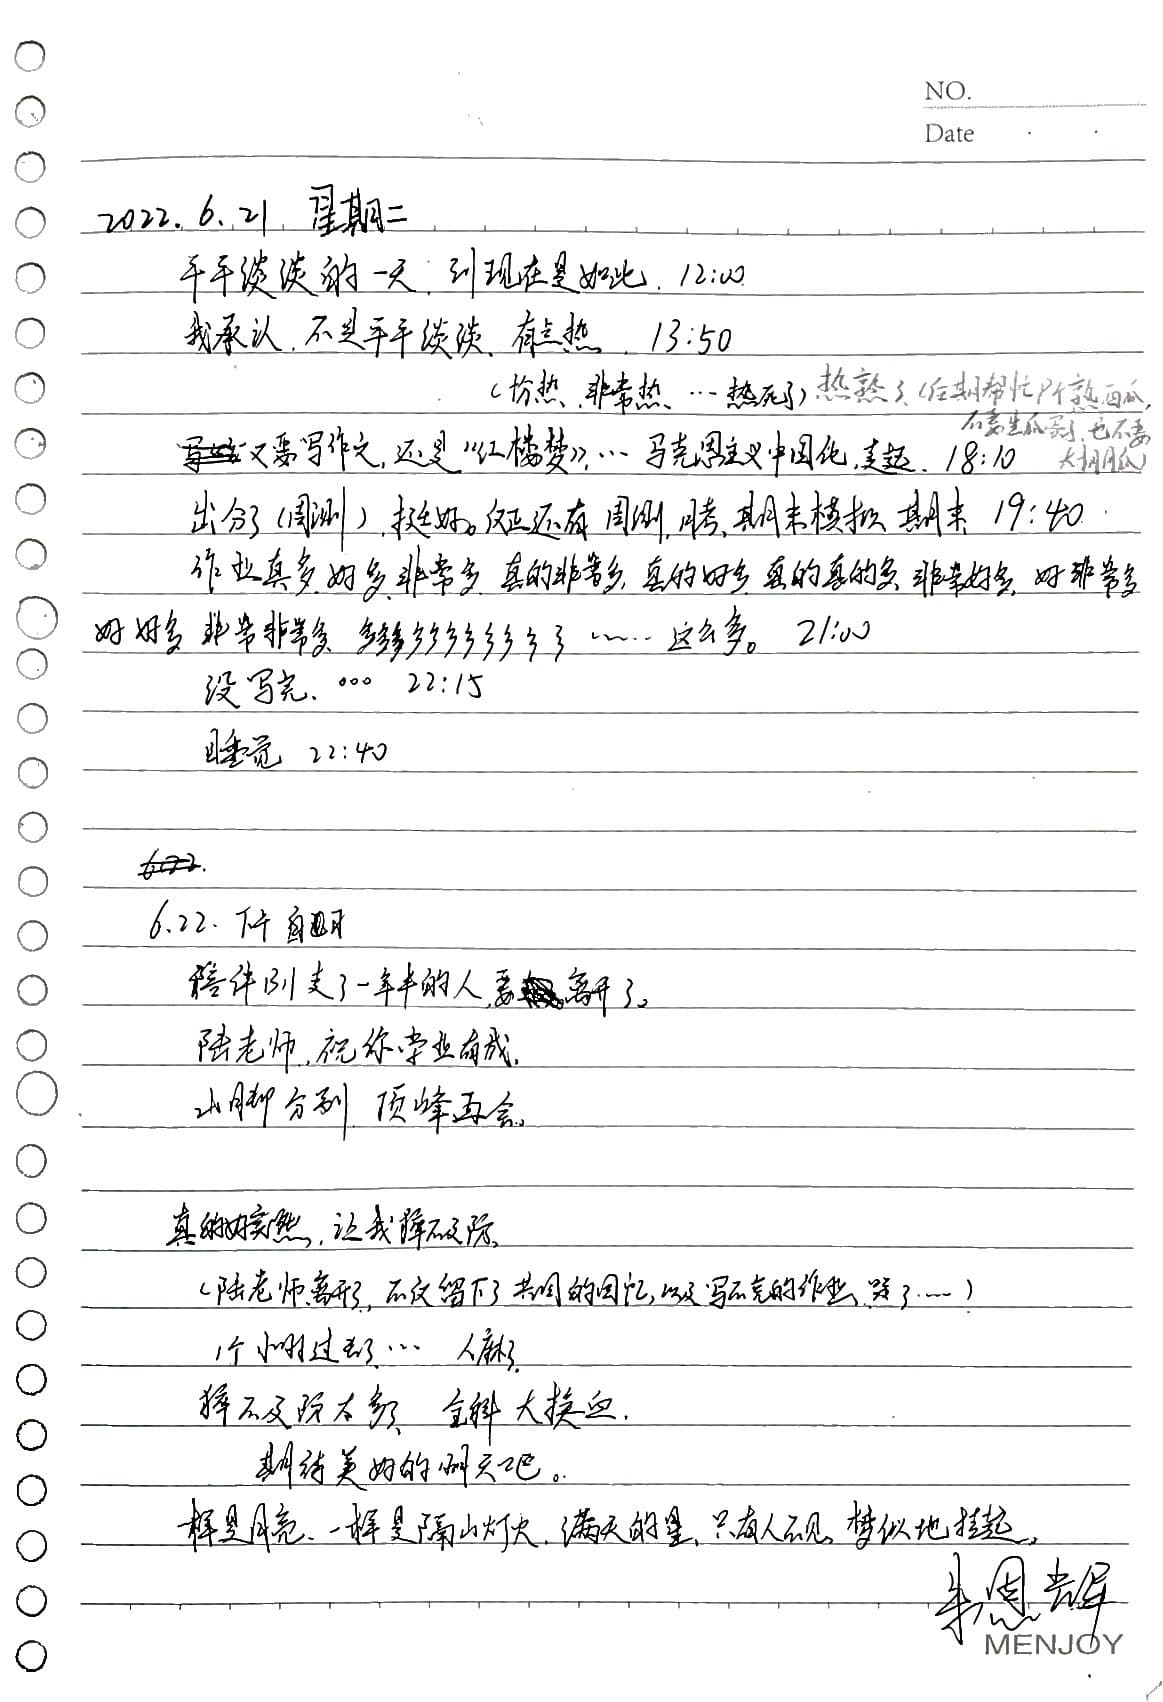 NO.
Date
2022.6.21. 星期二
平平淡淡的一天.到现在是如此. 12:00
我承认.不是平平淡淡.有点热. 13:50
(好热、非常热、…热死了) 热熟了(后期帮忙P个熟西瓜,
不要生瓜 也不要
大胡月瓜)
又要写作文,还是《红楼梦》,… 马克思主义中国化,走起. 18:10
出分了(周测),挺好。仅还有周测,月考,期末模拟 期末 19:40
作业真多.好多.非常多.真的非常多.真的好多.真的真的多.非常好多.好非常多
好好多 非常非常多 多多多多多多多多多多 …… 这么多。 21:00
没写完.°°° 22:15
睡觉 22:40
6.22.
6.22. 下午自习
陪伴 走了一年半的人,要离开了。
陆老师,祝你学业有成,
山脚分别 顶峰再会。
真的好突然,让我猝不及防,
(陆老师离开了,不仅留下了共同的回忆,以及写不完的作业、 了……)
1个小时过去了… 人麻了
猝不及防太多了 全科大换血.
期待美好的明天吧。
一样是月亮、一样是隔山灯火.满天的星,只有人不见,梦似地挂起。
朱恩光辉
MENJOY